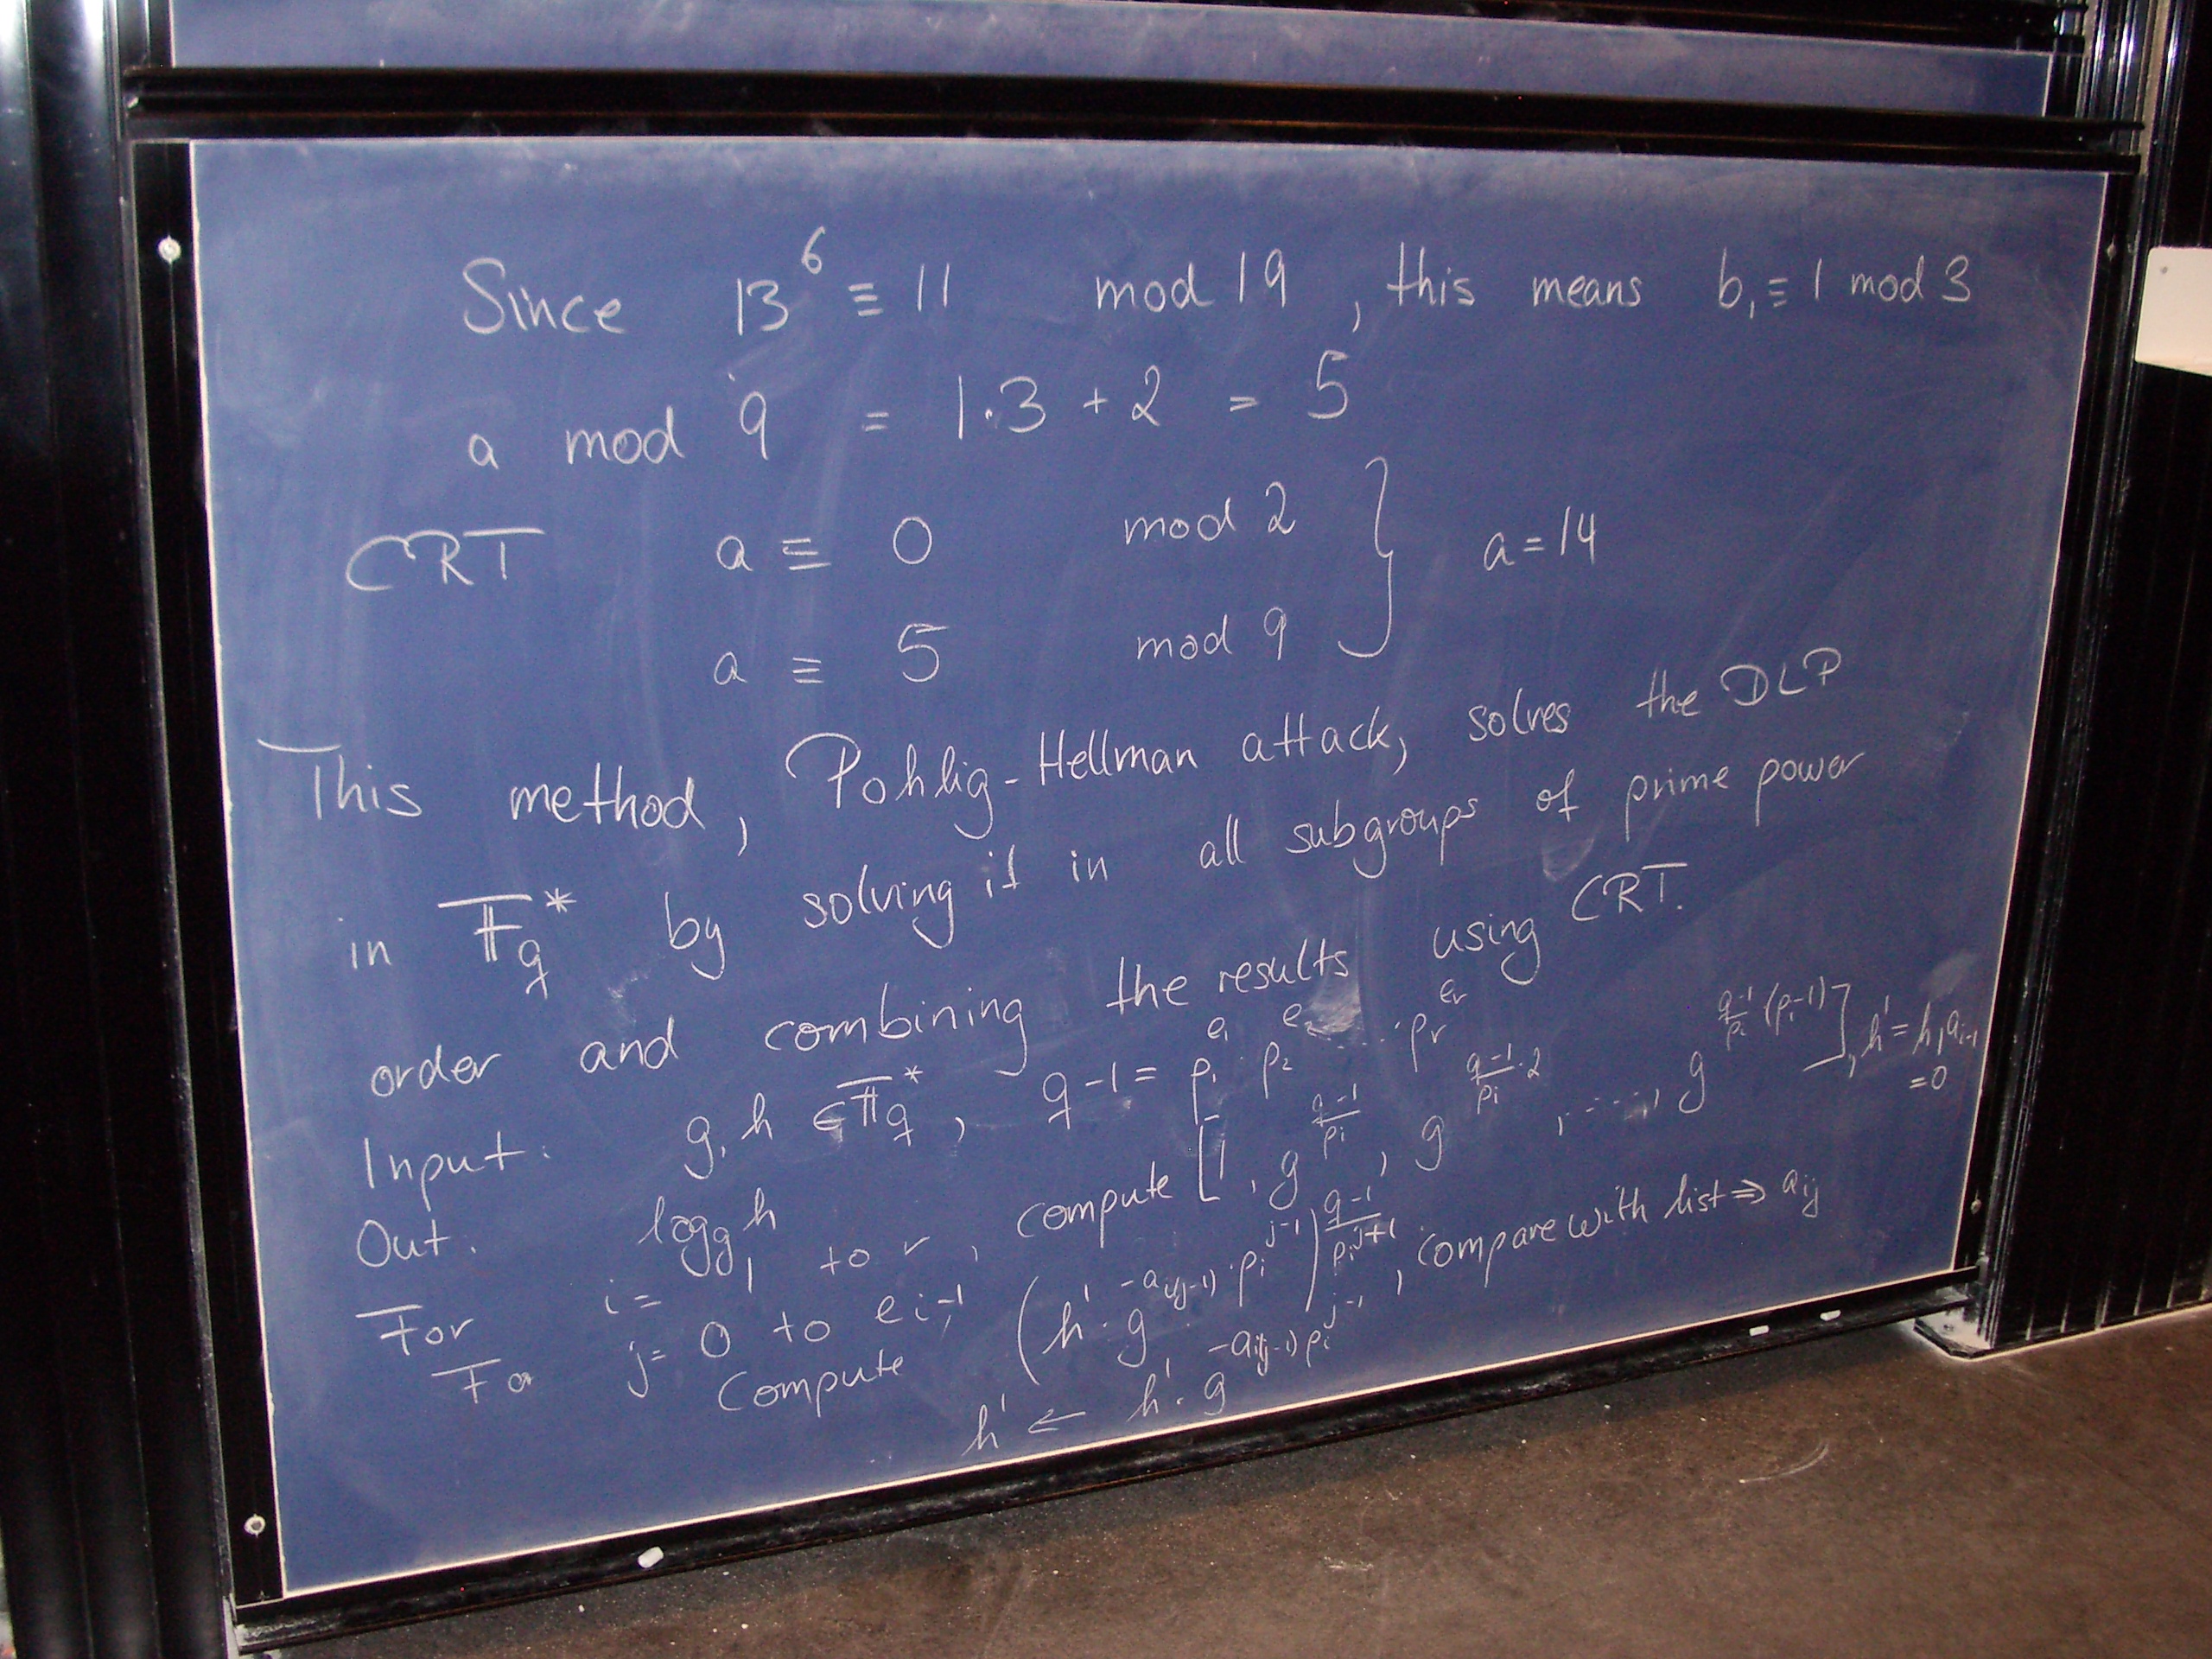 Since 13^6 ≡ 11 mod 19, this means b₁ ≡ 1 mod 3
a mod 9 = 1·3 + 2 = 5
CRT a ≡ 0 mod 2 } a = 14
a ≡ 5 mod 9
This method, Pohlig-Hellman attack, solves the DLP
in 𝔽_q^* by solving it in all subgroups of prime power
order and combining the results using CRT.
Input: g, h ∈ 𝔽_q^*, q-1 = p₁^{e₁} · p₂^{e₂} ..... · p_r^{e_r}
Out: log_g h
For i = 1 to r, compute [1, g^{(q-1)/p_i}, g^{(q-1)/p_i · 2}, ....., g^{(q-1)/p_i (p_i-1)}], h' = h, a_{i,-1} = 0
For j = 0 to e_i-1
Compute (h' · g^{-a_{i(j-1)} · p_i^{j-1}})^{(q-1)/p_i^{j+1}}, compare with list ⇒ a_{ij}
h' ← h' · g^{-a_{i(j-1)} p_i^{j-1}}